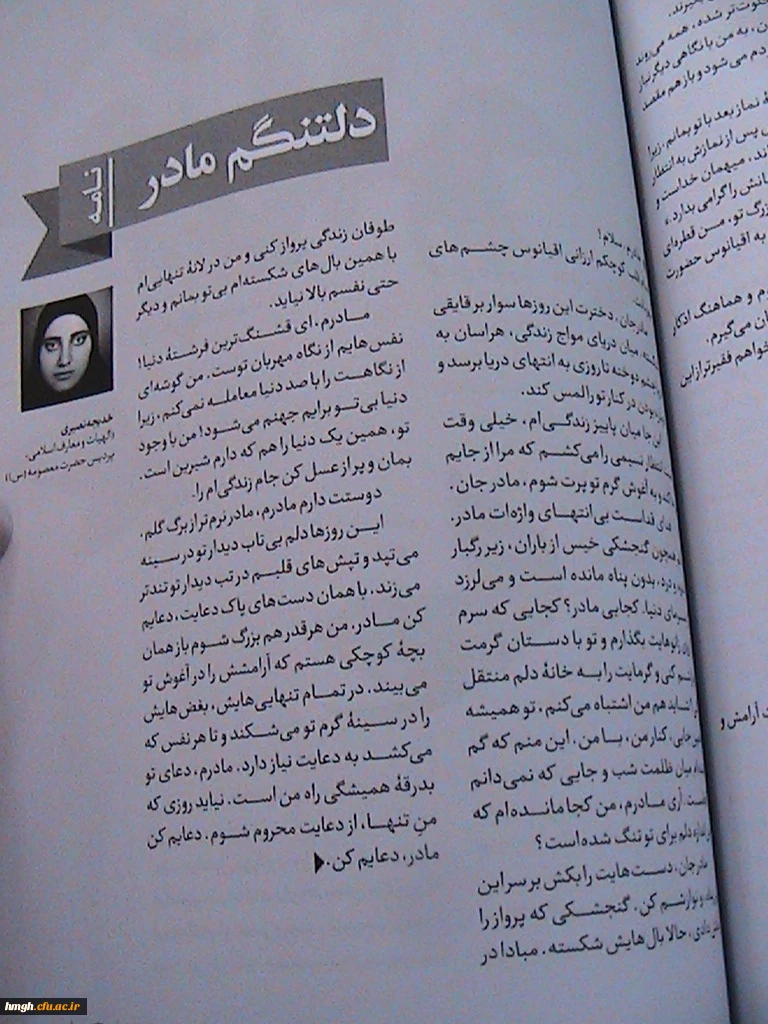 دلتنگم مادر
نامه
خدیجه نصیری
(الهیات و معارف اسلامی،
پردیس حضرت معصومه (س))
مادرم، سلام!
قلب کوچکم ارزانی اقیانوس چشم‌های
مادرجان، دخترت این روزها سوار بر قایقی
میان دریای مواج زندگی، هراسان به
دوخته تا روزی به انتهای دریا برسد و
بودن در کنار تو را لمس کند.
این جا میان پاییز زندگی‌ام، خیلی وقت
انتظار نسیمی را می‌کشم که مرا از جایم
و به آغوش گرم تو پرت شوم، مادر جان.
فدای بی‌انتهای واژه‌ات مادر.
همچون گنجشکی خیس از باران، زیر رگبار
درد، بدون پناه مانده است و می‌لرزد
سرمای دنیا. کجایی مادر؟ کجایی که سرم
زانوهایت بگذارم و تو با دستان گرمت
کنی و گرمایت را به خانهٔ دلم منتقل
شاید هم من اشتباه می‌کنم، تو همیشه
همین جایی، کنار من، با من. این منم که گم
میان ظلمت شب و جایی که نمی‌دانم
آری مادرم، من کجا مانده‌ام که
دلم برای تو تنگ شده است؟
مادرجان، دست‌هایت را بکش بر سر این
و نوازشم کن. گنجشکی که پرواز را
دادی، حالا بال‌هایش شکسته. مبادا در
طوفان زندگی پرواز کنی و من در لانهٔ تنهایی‌ام
با همین بال‌های شکسته‌ام بی‌تو بمانم و دیگر
حتی نفسم بالا نیاید.
مادرم، ای قشنگ‌ترین فرشتهٔ دنیا!
نفس‌هایم از نگاه مهربان توست. من گوشه‌ای
از نگاهت را با صد دنیا معامله نمی‌کنم، زیرا
دنیا بی‌تو برایم جهنم می‌شود! من با وجود
تو، همین یک دنیا را هم که دارم شیرین است.
بمان و پر از عسل کن جام زندگی‌ام را.
دوستت دارم مادرم، مادر نرم‌تر از برگ گلم.
این روزها دلم بی‌تاب دیدار تو در سینه
می‌تپد و تپش‌های قلبم در تب دیدار تو تندتر
می‌زند. با همان دست‌های پاک دعایت، دعایم
کن مادر. من هرقدر هم بزرگ شوم باز همان
بچهٔ کوچکی هستم که آرامشش را در آغوش تو
می‌بیند. در تمام تنهایی‌هایش، بغض‌هایش
را در سینهٔ گرم تو می‌شکند و تا هر نفس که
می‌کشد به دعایت نیاز دارد. مادرم، دعای تو
بدرقهٔ همیشگی راه من است. نیاید روزی که
من تنها، از دعایت محروم شوم. دعایم کن
مادر، دعایم کن.
شده، همه می‌روند
به من با نگاهی دیگر نیاز
دم می‌شود و باز هم مقصد
نماز بعد با تو بمانم، زیرا
پس از نمازش به انتظار
میهمان خداست و
را گرامی بدارد.
تو، من قطره‌ای
به اقیانوس حضورت
و هماهنگ اذکار
می‌گیرم.
خواهم فقیرتر از این
آرامش و
hmgh.cfu.ac.ir